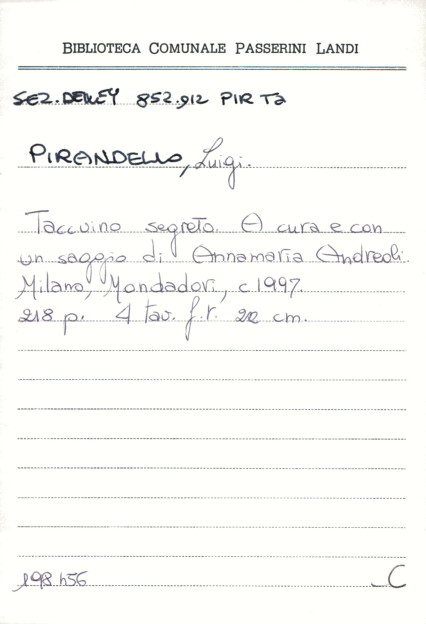 BIBLIOTECA COMUNALE PASSERINI LANDI
SEZ. DEWEY 852.912 PIR Ta
PIRANDELLO, Luigi.
Taccuino segreto. A cura e con
un saggio di Annamaria Andreoli.
Milano, Mondadori, c 1997.
218 p. 4 tav. f.t. 22 cm.
198456 C